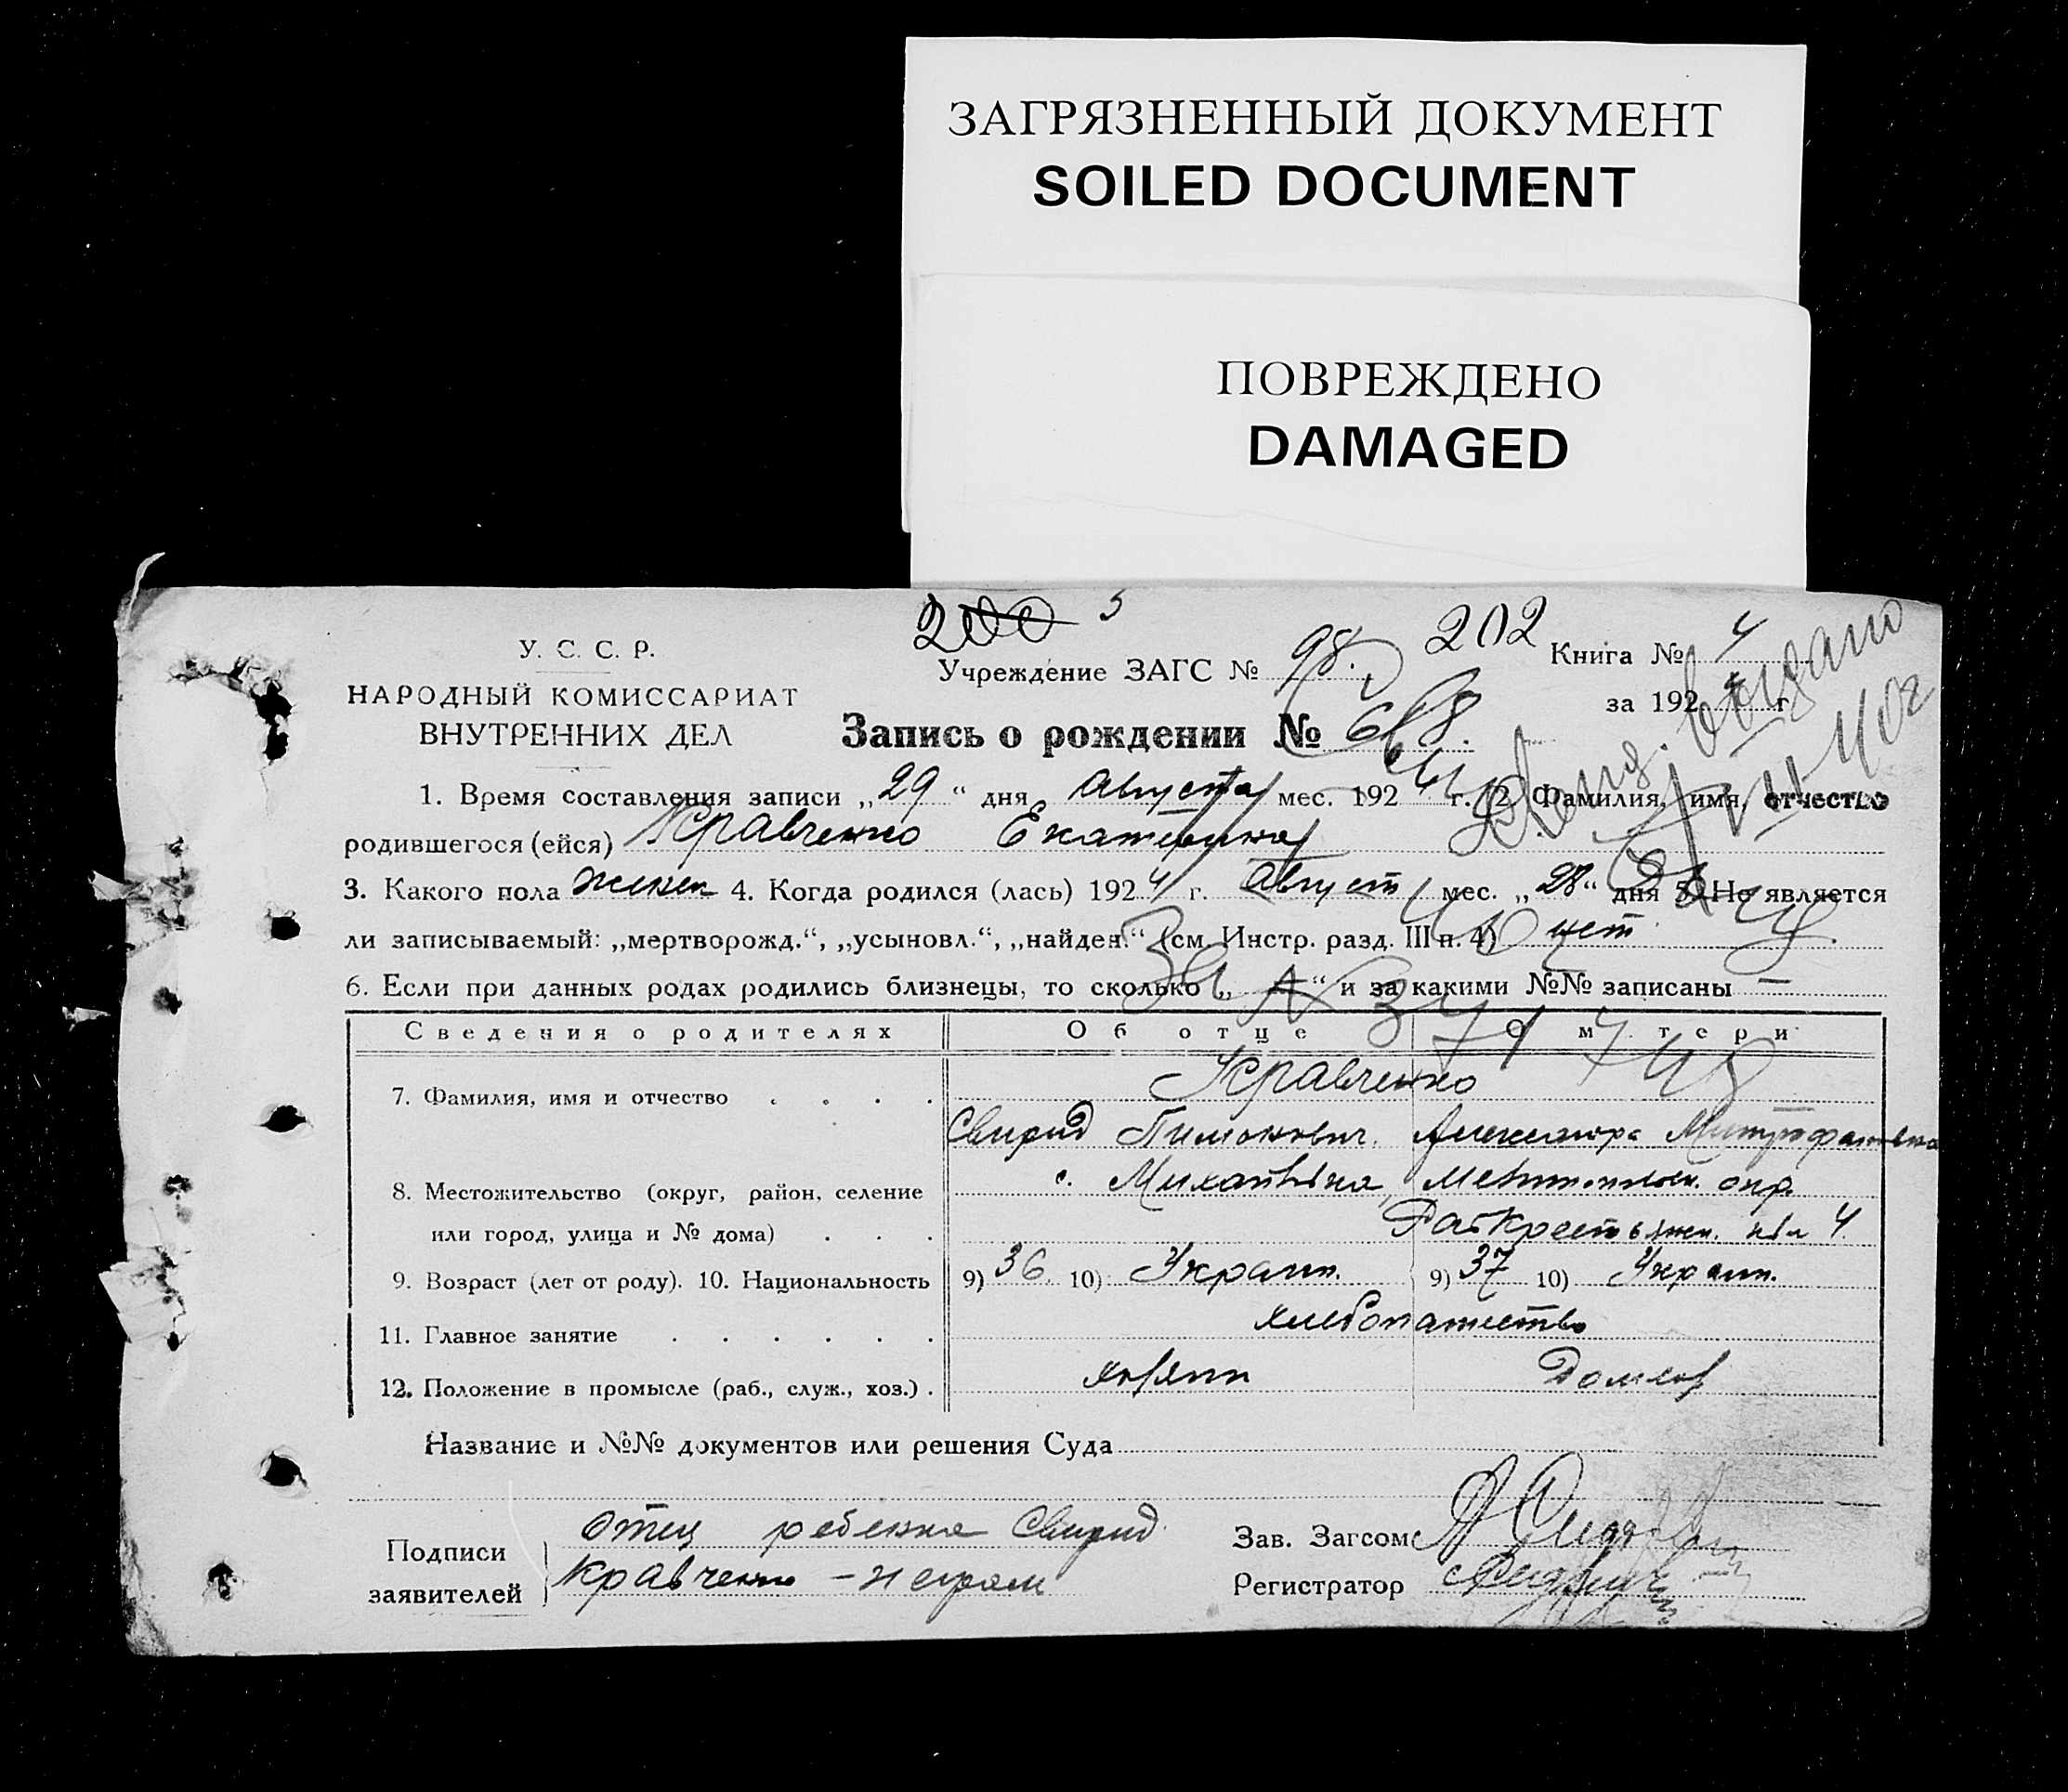 ЗАГРЯЗНЕННЫЙ ДОКУМЕНТ
SOILED DOCUMENT
ПОВРЕЖДЕНО
DAMAGED
200 5
202
У. С. С. Р.
НАРОДНЫЙ КОМИССАРИАТ
ВНУТРЕННИХ ДЕЛ
Учреждение ЗАГС № 98.
Книга № 4
за 1924 г
Запись о рождении № 618.
1. Время составления записи „29“ дня Августа мес. 1924 г. 2. Фамилия, имя, отчество
родившегося (ейся) Кравченко Екатерина
3. Какого пола женск 4. Когда родился (лась) 1924 г. Август мес. „28“ дня 5. Не является
ли записываемый: „мертворожд.“, „усыновл.“, „найден.“ (см. Инстр. разд. III п. 4) нет
6. Если при данных родах родились близнецы, то сколько „ “ и за какими №№ записаны —
Сведения о родителях Об отце О м тери
7. Фамилия, имя и отчество . . . . Кравченко
Свирид Пимонович. Александра Митрофановна
8. Местожительство (округ, район, селение с. Михайловка, Мелитопольск. окр.
или город, улица и № дома) . . .
9. Возраст (лет от роду). 10. Национальность 9) 36. 10) Украин. 9) 37 10) Украин.
11. Главное занятие . . . . . . хлебопашество
12. Положение в промысле (раб., служ., хоз.) . хозяин Домхоз
Название и №№ документов или решения Суда
Подписи заявителей
Отец ребенка Свирид
Кравченко – неграм
Зав. Загсом
Регистратор